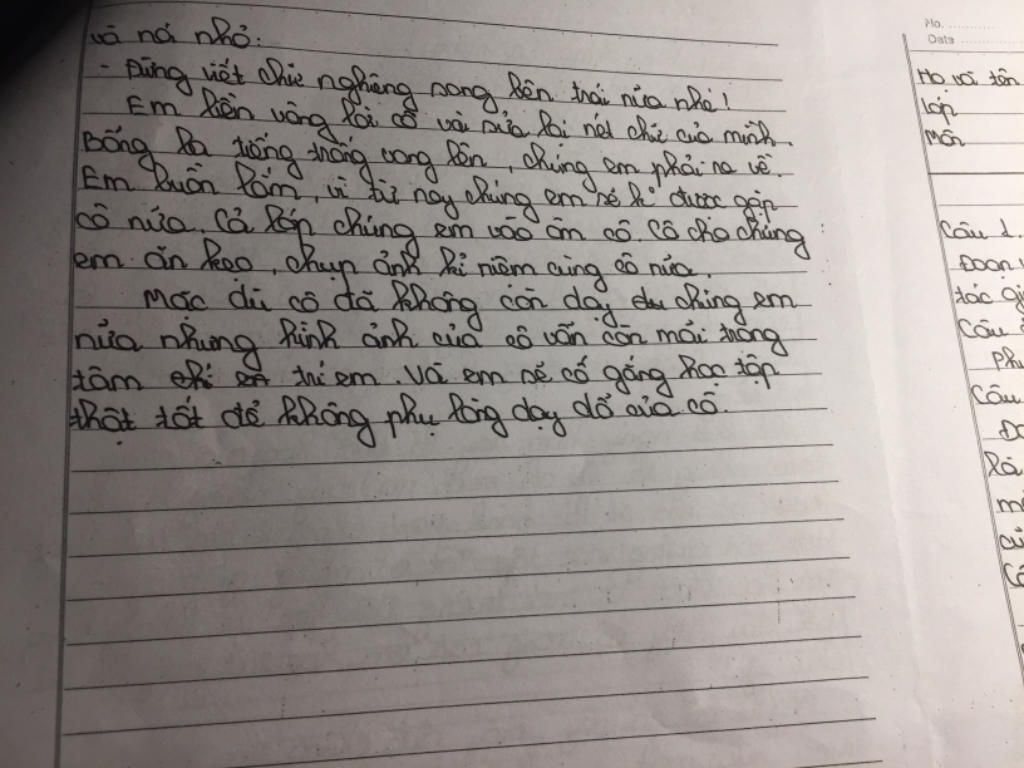 và nó nhỏ:
- Đừng viết chữ nghiêng sang bên trái nữa nhé!
Em liền vâng lời cô và sửa lại nét chữ của mình.
Bỗng la tiếng trống vang lên, chúng em phải ra về.
Em buồn lắm, vì từ nay chúng em sẽ k được gặp
cô nữa. Cả lớp chúng em vào ôm cô. Cô cho chúng
em ăn kẹo, chụp ảnh kỉ niệm cùng cô nữa.
Mặc dù cô đã không còn dạy du chúng em
nữa nhưng hình ảnh của cô vẫn còn mãi trong
tâm chí en trí em. Và em sẽ cố gắng học tập
thật tốt để không phụ lòng dạy dỗ của cô.
No.
Date
Họ và tên
Lớp
Môn
Câu 1.
Đoạn
tác gi
Câu
Ph
Câu
Đo
là
củ